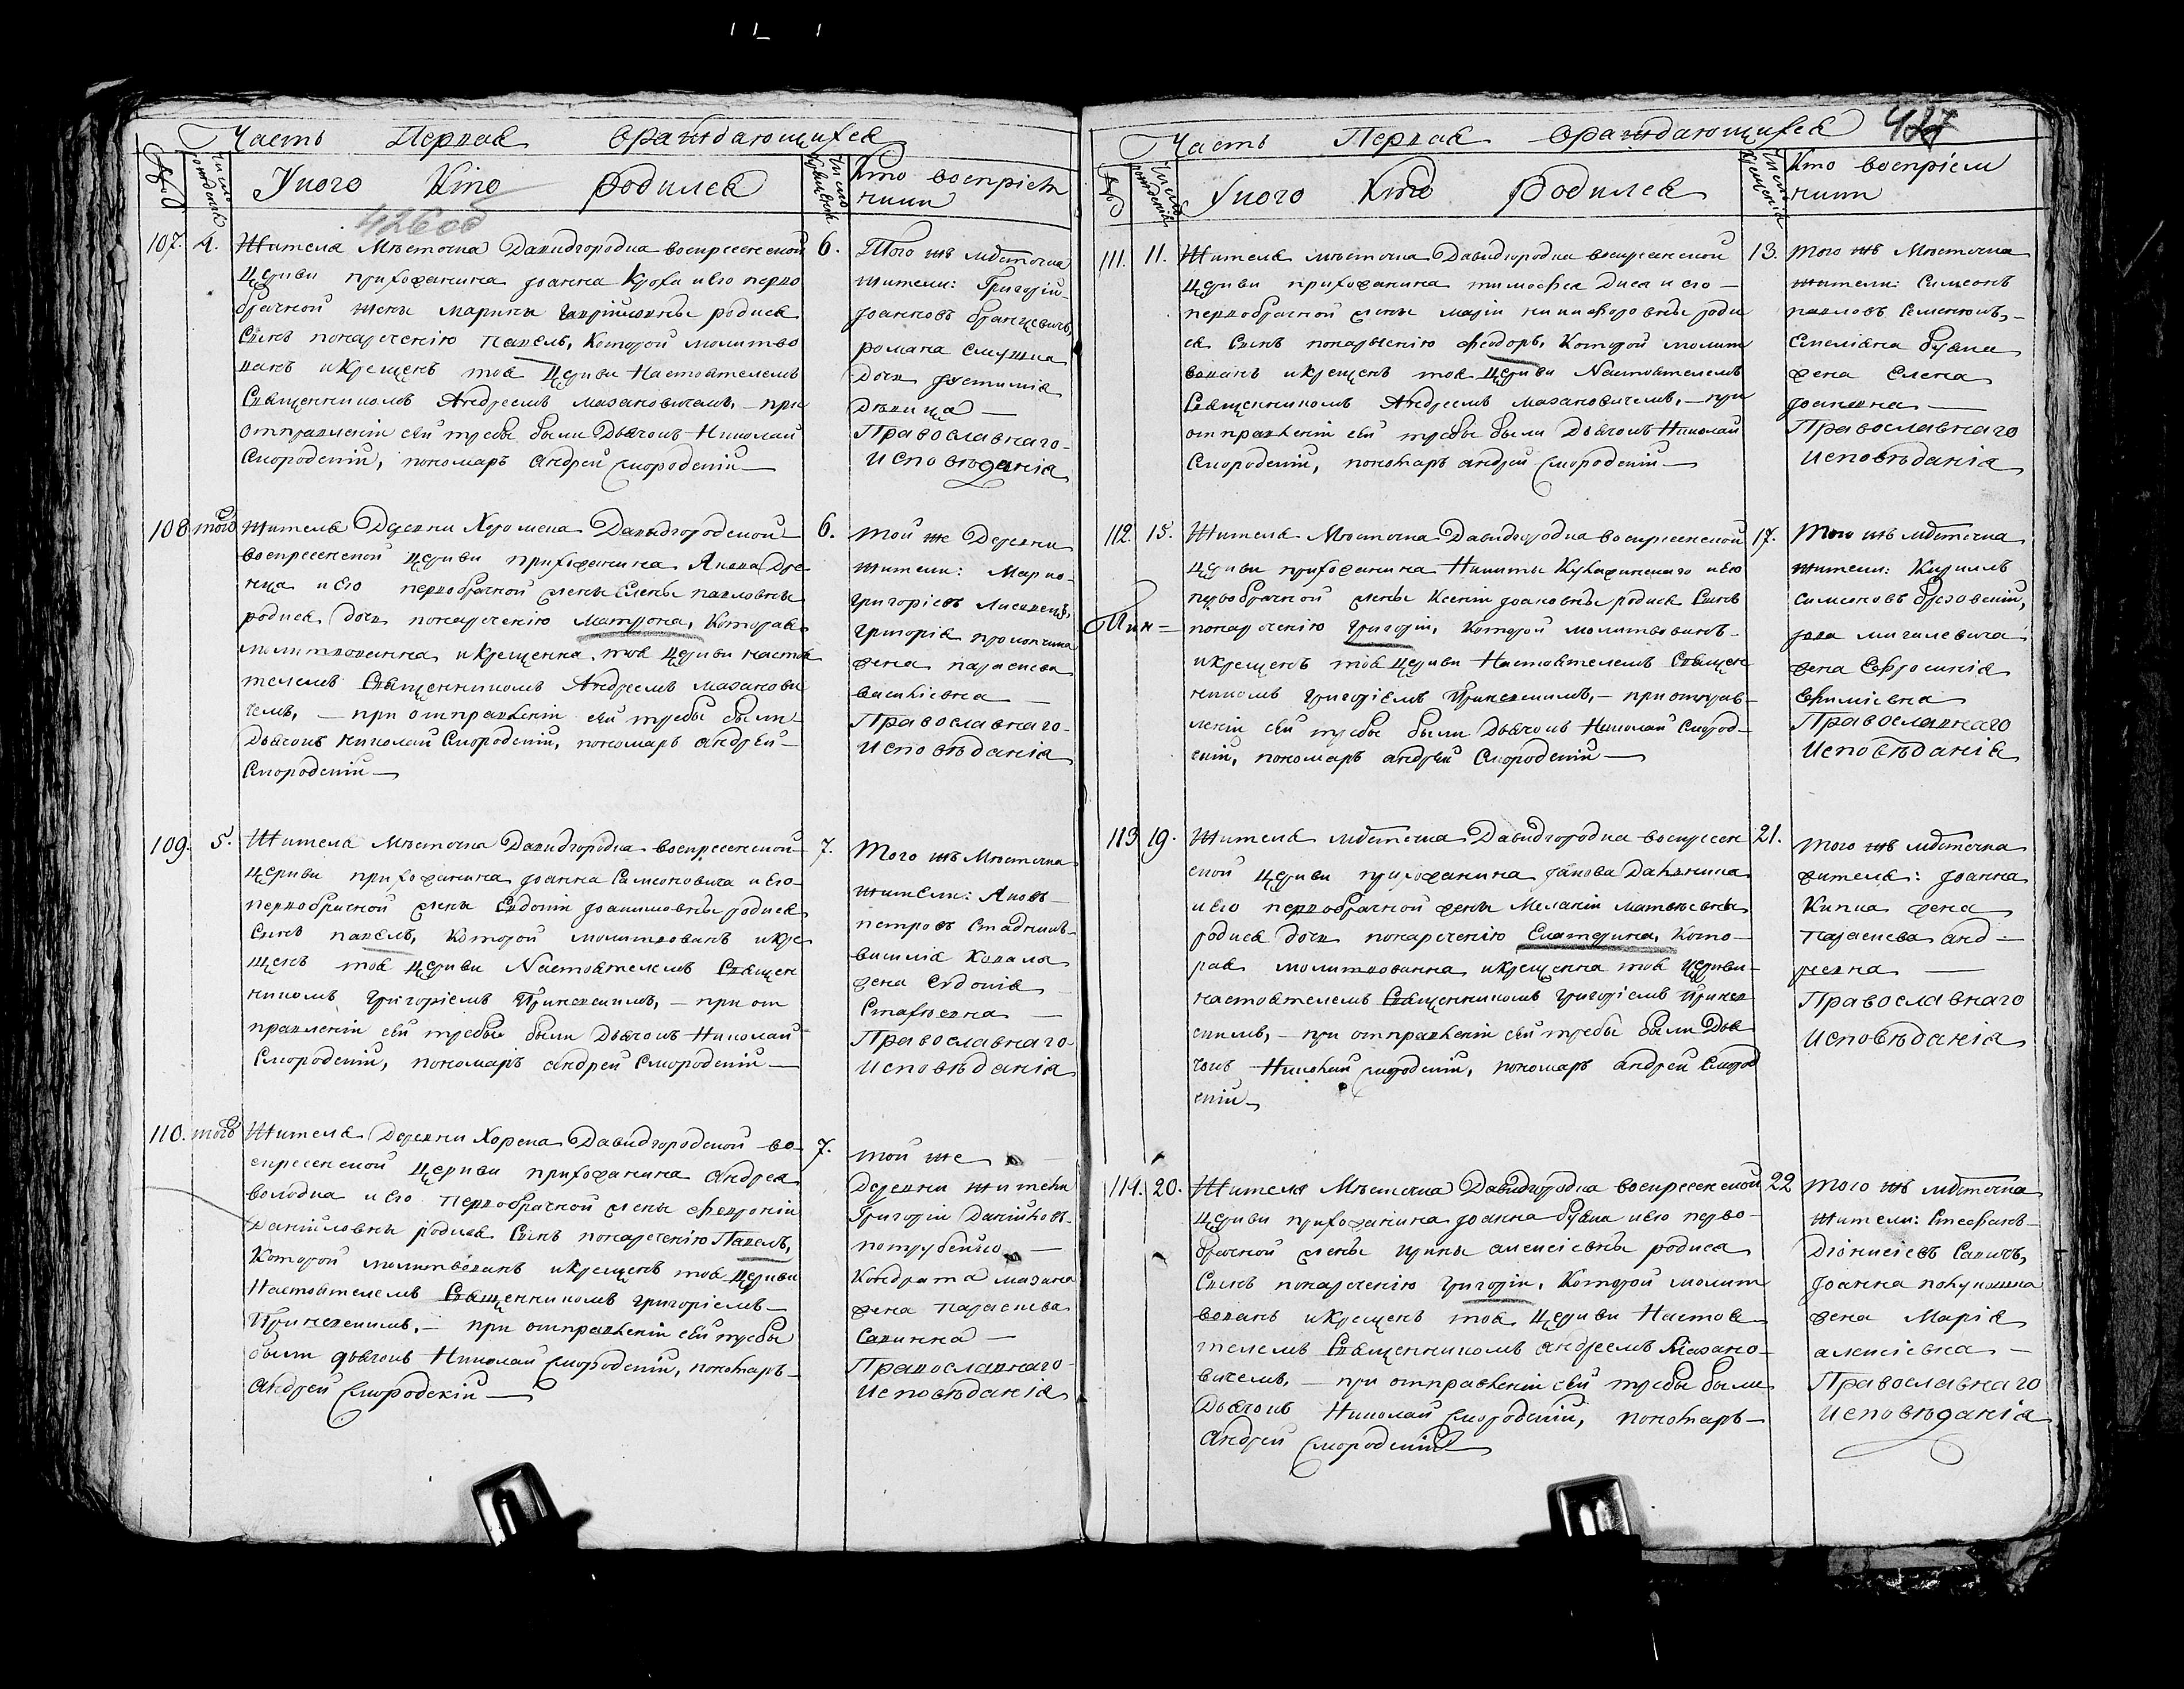 Часть Первая ораждающихся
Уного Кто родился
Кто воспріем
ники
426 об
107. 4. Жителя Мѣстечка Давидгородка воскресенской 6.
Церкви прихожанина Іоанна Крота и его перво
брачной жены Марины Гавріиловны родися
Сынъ понаречению Павелъ, Которой молитво
ванъ и Крещенъ тоя Церкви Настоятелемъ
Священникомъ Андреемъ Мазановичемъ, — при
отправленіи сей требы были Дьячокъ Николай
Смородскій, пономарь Андрей Смородскій —
Того жъ мѣстечка
жители: Григорій
Іоанновъ
романа
дочь Іустинія
Дѣвица —
Православнаго
Исповѣданія
108 того Жителя Деревни Хоромска Давидгородской 6.
воскресенской Церкви прихожанина Якова
и его первобрачной жены Елены павловны
родися дочь понаречению Матрона, Котора
молитвованна и Крещенна тоя Церкви настоя
телемъ Священникомъ Андреемъ мазанови
чемъ, — при отправленіи сей требы были
Дьячокъ Николай Смородскій, пономарь андрей
Смородскій —
той же Деревни
жители: Марко
григоріевъ
Григорія
жена параскева
василіевна —
Православнаго
Исповѣданія
109. 5. Жителя Мѣстечка Давидгородка воскресенской 7.
церкви прихожанина Іоанна Симоновича и его
первобрачной жены Евдокіи Іоакимовны родися
Сынъ павелъ, Которой молитвованъ и кре
щенъ тоя церкви Настоятелемъ Священ
никомъ Григоріемъ — при от
правленіи сей требы были Дьячокъ Николай
Смородскій, пономарь андрей Смородскій —
Того жъ Мѣстечка
жители: Яковъ
петровъ
василія Коваля
жена Евдокія
Православнаго
Исповѣданія
110. того Жителя Деревни Хорска Давидгородской во 7.
скресенской Церкви прихожанина андрея
володка и его первобрачной жены февроніи
Даніиловны родися Сынъ понаречению Павелъ,
Которой молитвованъ и крещенъ тоя церкви
Настоятелемъ Священникомъ григоріемъ
— при отправленіи сей требы
были дьячокъ Николай Смородскій, пономарь
Андрей Смородскій —
той же
Деревни жители
Григорій Даніиловъ
Кондрата
жена параскева
Саввина —
Православнаго
Исповѣданія
427
Часть Первая ораждающихся
Уного Кто родился
Кто воспріем
ники
111. 11. Жителя мѣстечка Давидгородка воскресенской 13.
Церкви прихожанина тимофея Диса и его
первобрачной жены маріи никифоровны роди
ся Сынъ понаречению феодоръ, Которой молит
вованъ и крещенъ тоя церкви Настоятелемъ
Священникомъ Андреемъ мазановичемъ, — при
отправленіи сей требы были Дьячокъ Николай
Смородскій, пономарь андрей Смородскій —
того жъ Мѣстечка
жители: Симеонъ
павловъ
жена Елена
Іоановна —
Православнаго
Исповѣданія
112. 15. Жителя Мѣстечка Давидгородка воскресенской 17.
церкви прихожанина Никиты и его
первобрачной жены Ксеніи Іоановны родися Сынъ
понаречению Григорій, Которой молитвованъ
и крещенъ тоя церкви Настоятелемъ Священ
никомъ григоріемъ — при отправ
леніи сей требы были Дьячокъ Николай Смород
скій, пономарь андрей Смородскій —
Того жъ мѣстечка
жители: Кириллъ
симеоновъ
жена Евфросинія
Ефиміевна
Православнаго
Исповѣданія
113 19. Жителя мѣстечка Давидгородка воскресен 21.
ской церкви прихожанина
и его первобрачной жены Меланіи матвѣевны
родися дочь понаречению Екатерина, Кото
рая молитвованна и крещенна тоя церкви
настоятелемъ Священникомъ Григоріемъ
— при отправленіи сей требы были Дья
чокъ Николай Смородскій, пономарь андрей Смород
скій —
того жъ мѣстечка
жители: Іоанна
жена
параскева анд
реевна —
Православнаго
Исповѣданія
114. 20. Жителя Мѣстечка Давидгородка воскресенской 22
церкви прихожанина Іоанна и его перво
брачной жены ирины алексіевны родися
Сынъ понаречению григорій, Которой молит
вованъ и крещенъ тоя церкви Настоя
телемъ Священникомъ андреемъ Мазано
вичемъ, — при отправленіи сей требы были
Дьячокъ Николай Смородскій, пономарь
Андрей Смородскій
того жъ мѣстечка
жители: Стефанъ
Діонисіевъ
Іоанна
жена Марія
алексіевна —
Православнаго
Исповѣданія